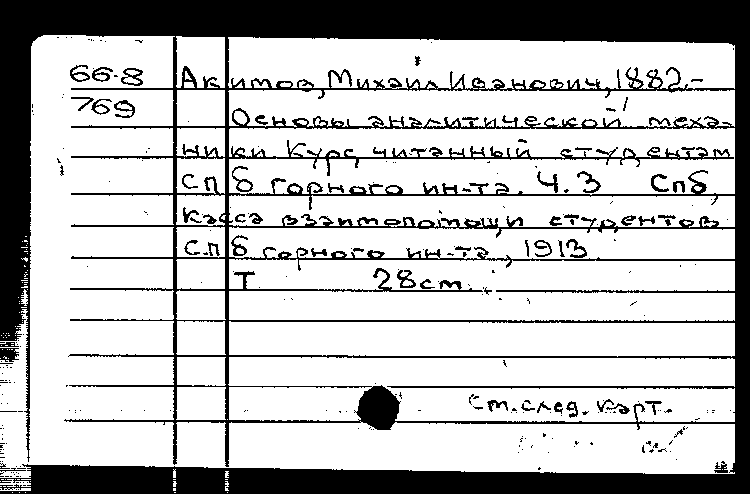 66-8 Акимов, Михаил Иванович, 1882-
769 Основы аналитической меха-
ники. Курс, читанный студентам
СПб горного ин-та. Ч.3 Спб,
касса взаимопомощи студентов
С.П.б горного ин-та, 1913.
Т 28см.
См. след. карт.